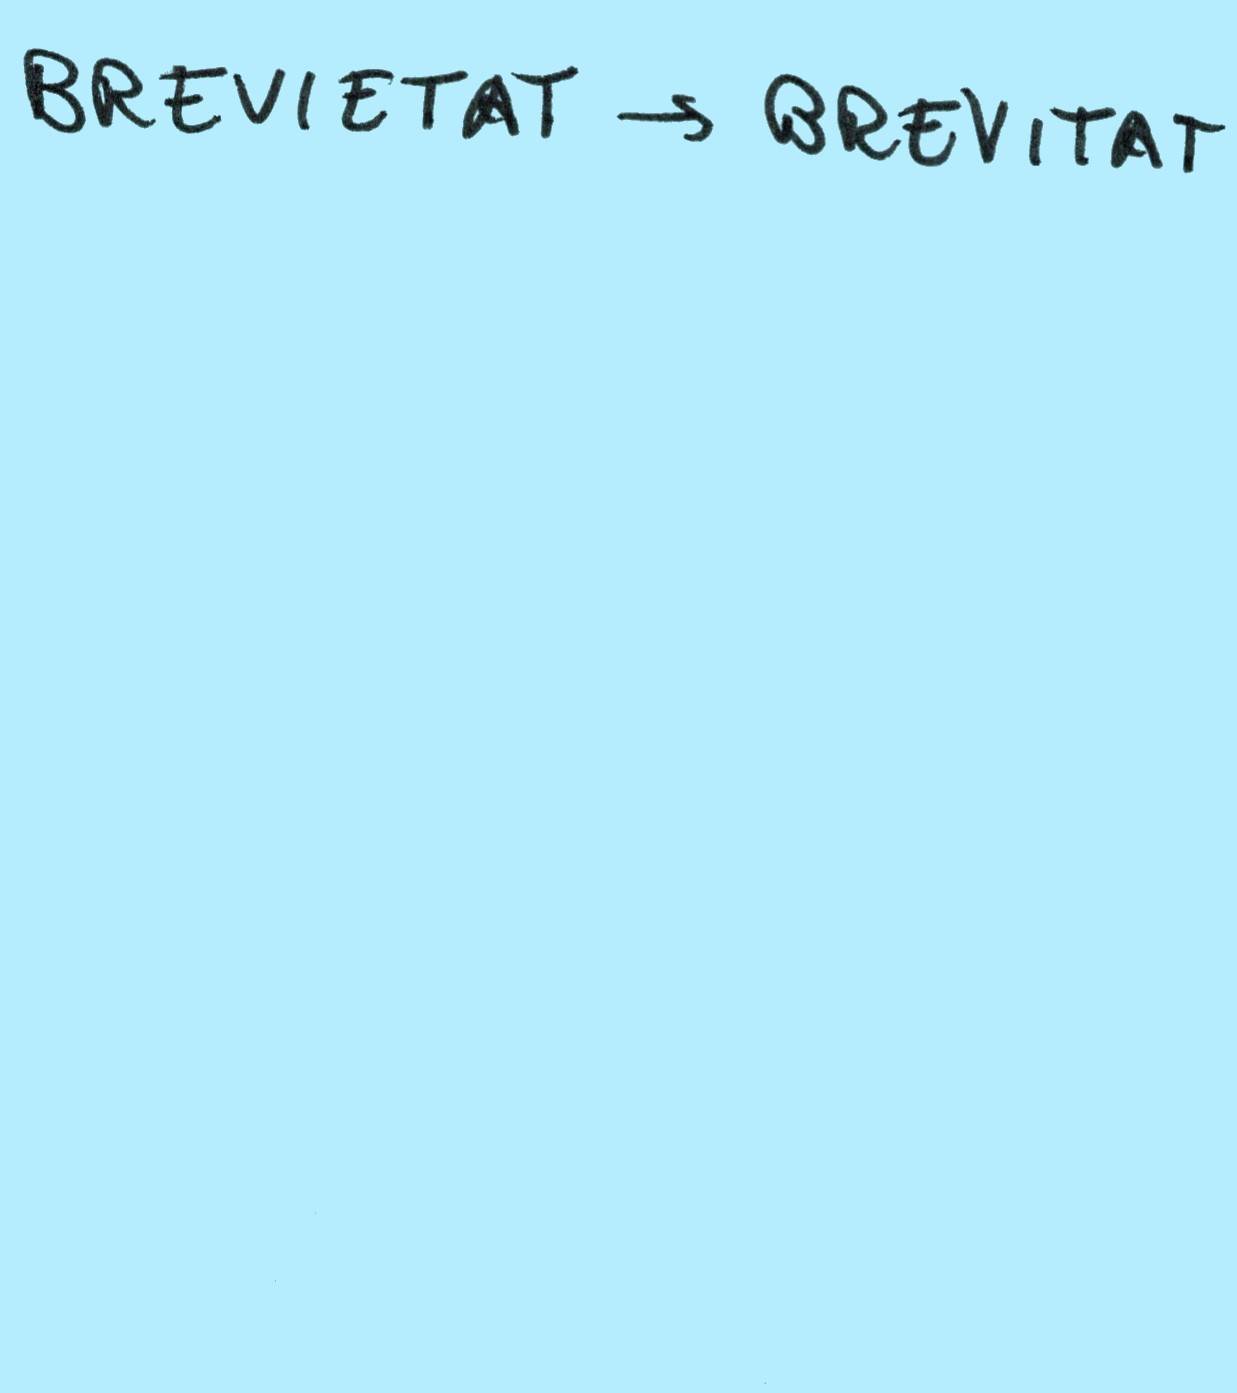 BREVIETAT → BREVITAT